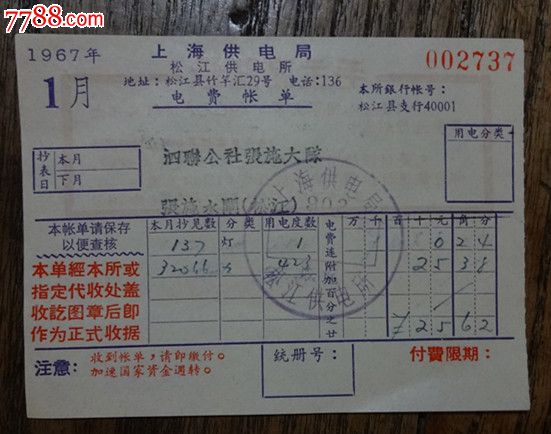 7788.com
1967年
上海供电局
松江供电所
地址：松江县竹竿汇29号 电话：136
电费帐单
002737
1月
本所銀行帐号：
松江县支行40001
抄表日
本月
下月
泗聯公社張施大隊
用电分类
上海供电局
松江供电所
本帐单请保存
以便查核
本月抄見数 分类 用电度数 电费連附加百分之廿 万 千 百 十 元 角 分
137 灯 1 0 24
423 25 38
25 62
本单經本所或
指定代收处盖
收訖图章后即
作为正式收据
注意：
收到帐单，请即缴付。
加速国家資金週转。
统册号：
付費限期：